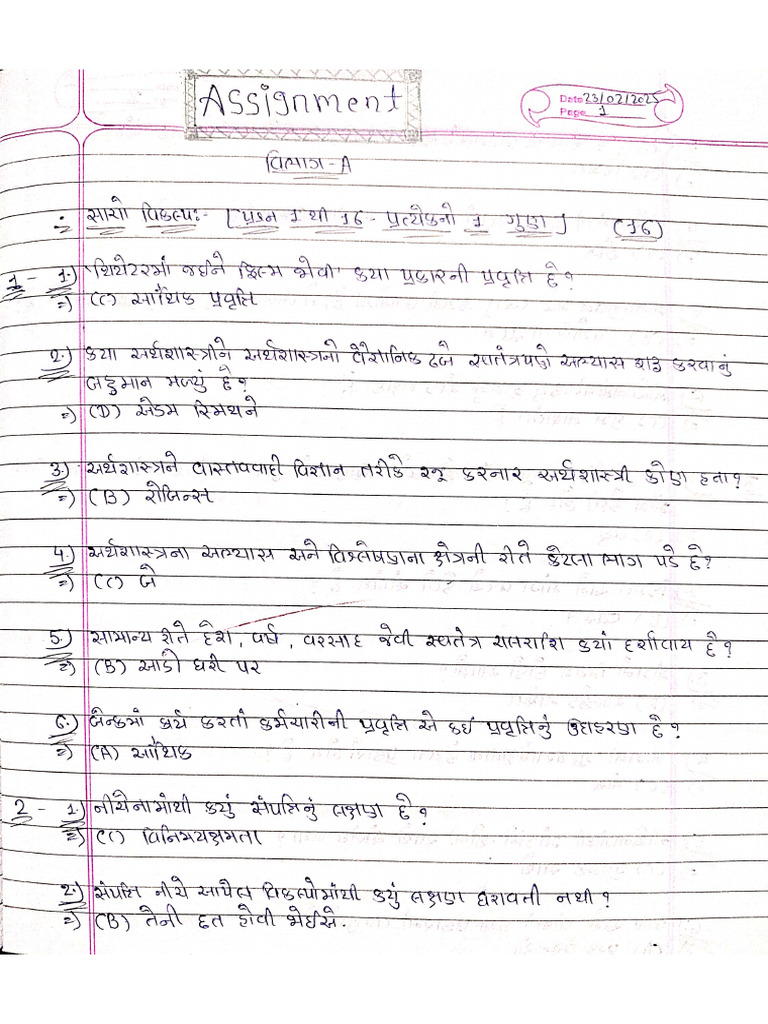 Assignment
Date 23/02/2025
Page 1
વિભાગ-A
: સાચો વિકલ્પ:- [પ્રશ્ન 1 થી 16 - પ્રત્યેકનો 1 ગુણ] (16)
1 - 1.) 'થિયેટરમાં જઈને ફિલ્મ જોવી' કયા પ્રકારની પ્રવૃત્તિ છે?
=) (C) આર્થિક પ્રવૃત્તિ
2.) કયા અર્થશાસ્ત્રીને અર્થશાસ્ત્રનો વૈજ્ઞાનિક ઢબે સ્વતંત્રપણે અભ્યાસ શરૂ કરવાનું
બહુમાન મળ્યું છે?
=) (D) એડમ સ્મિથને
3.) અર્થશાસ્ત્રને વાસ્તવવાદી વિજ્ઞાન તરીકે રજૂ કરનાર અર્થશાસ્ત્રી કોણ હતા?
=) (B) રોબિન્સ
4.) અર્થશાસ્ત્રના અભ્યાસ અને વિશ્લેષણના ક્ષેત્રની રીતે કેટલા ભાગ પડે છે?
=) (C) બે
5.) સામાન્ય રીતે દેશ, વર્ષ, વરસાદ જેવી સ્વતંત્ર ચલરાશિ કયાં દર્શાવાય છે?
=) (B) આડી ધરી પર
6.) બેન્કમાં કાર્ય કરતાં કર્મચારીની પ્રવૃત્તિ એ કઈ પ્રવૃત્તિનું ઉદાહરણ છે?
=) (A) આર્થિક
2 - 1.) નીચેનામાંથી કયું સંપત્તિનું લક્ષણ છે?
=) (C) વિનિમયક્ષમતા
2.) સંપત્તિ નીચે આપેલ વિકલ્પોમાંથી કયું લક્ષણ ધરાવતી નથી?
=) (B) તેની છત હોવી જોઈએ.